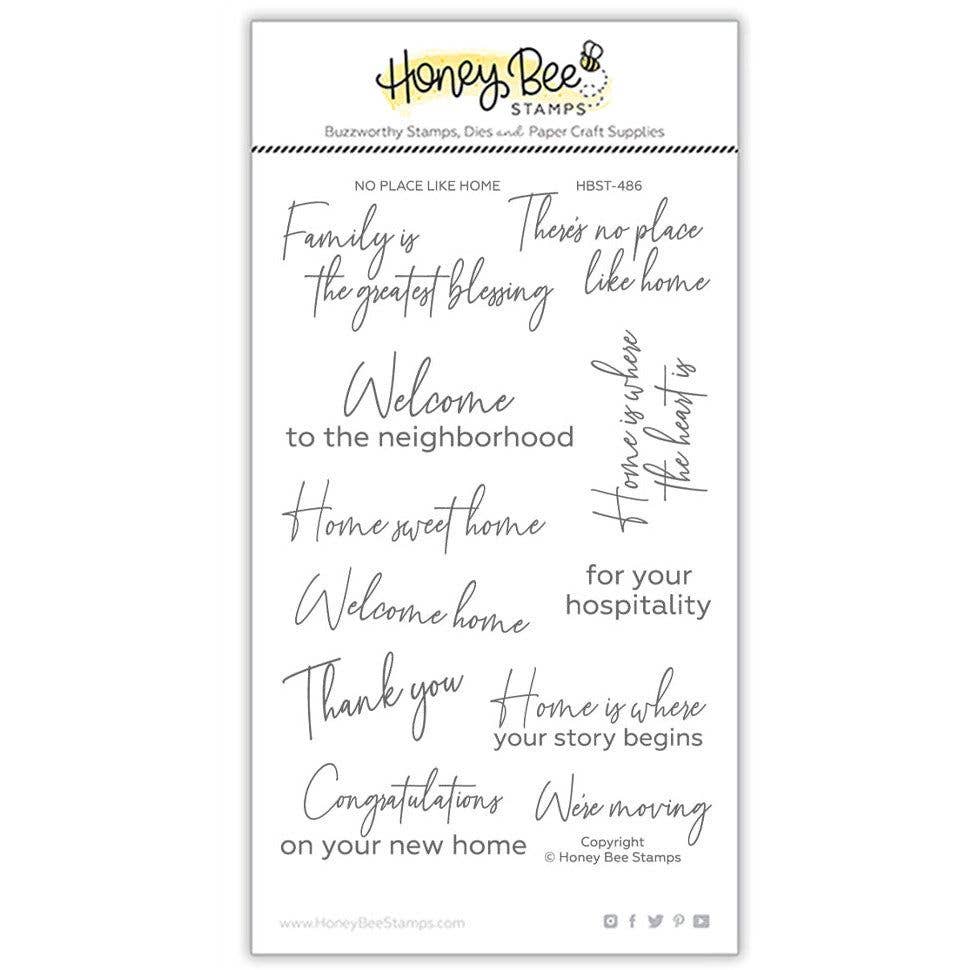 Honey Bee
STAMPS
Buzzworthy Stamps, Dies and Paper Craft Supplies
NO PLACE LIKE HOME
HBST-486
Family is
the greatest blessing
There's no place
like home
Welcome
to the neighborhood
Home is where
the heart is
Home sweet home
for your
hospitality
Welcome home
Thank you
Home is where
your story begins
Congratulations
on your new home
We're moving
Copyright
© Honey Bee Stamps
www.HoneyBeeStamps.com